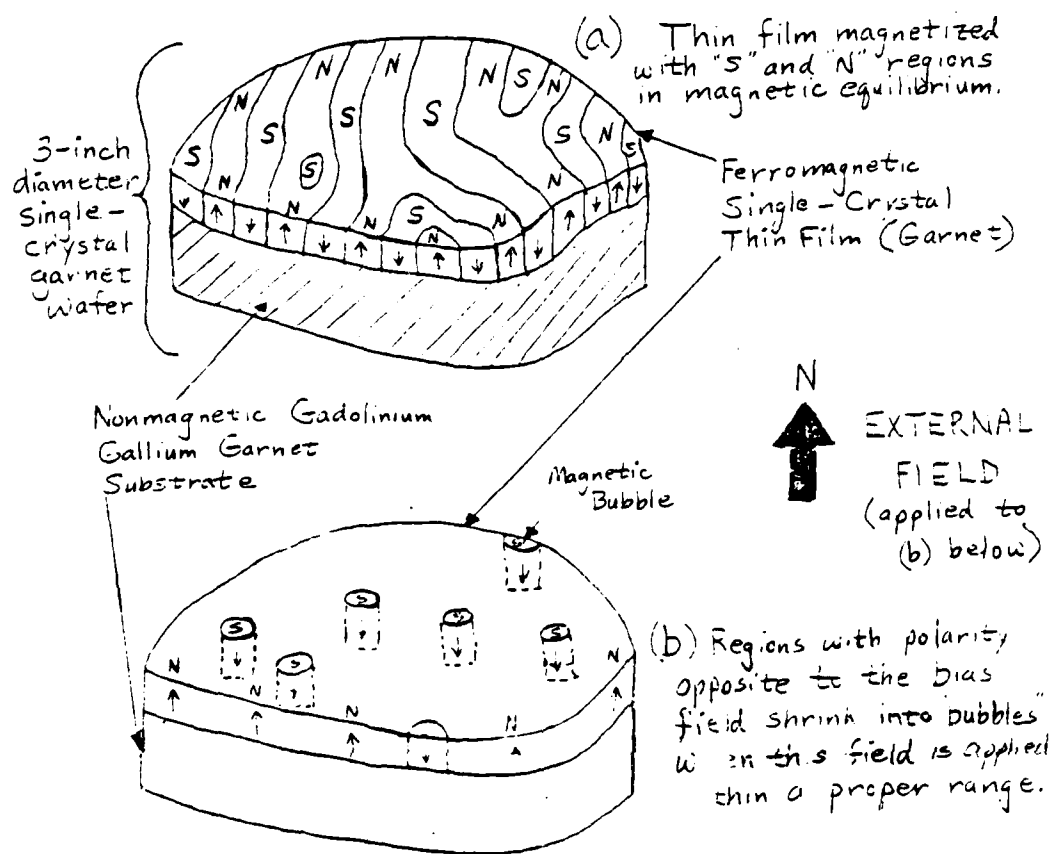 (a) Thin film magnetized
with "S" and "N" regions
in magnetic equilibrium.
3-inch
diameter
single-
crystal
garnet
wafer
N N N S N
N S S S S N
S S S
N N N N
S
N
Ferromagnetic
Single-Crystal
Thin Film (Garnet)
Nonmagnetic Gadolinium
Gallium Garnet
Substrate
Magnetic
Bubble
N
EXTERNAL
FIELD
(applied to
(b) below)
S
S S
S
N N
N
N N
(b) Regions with polarity
opposite to the bias
field shrink into bubbles"
field is applied
a proper range.